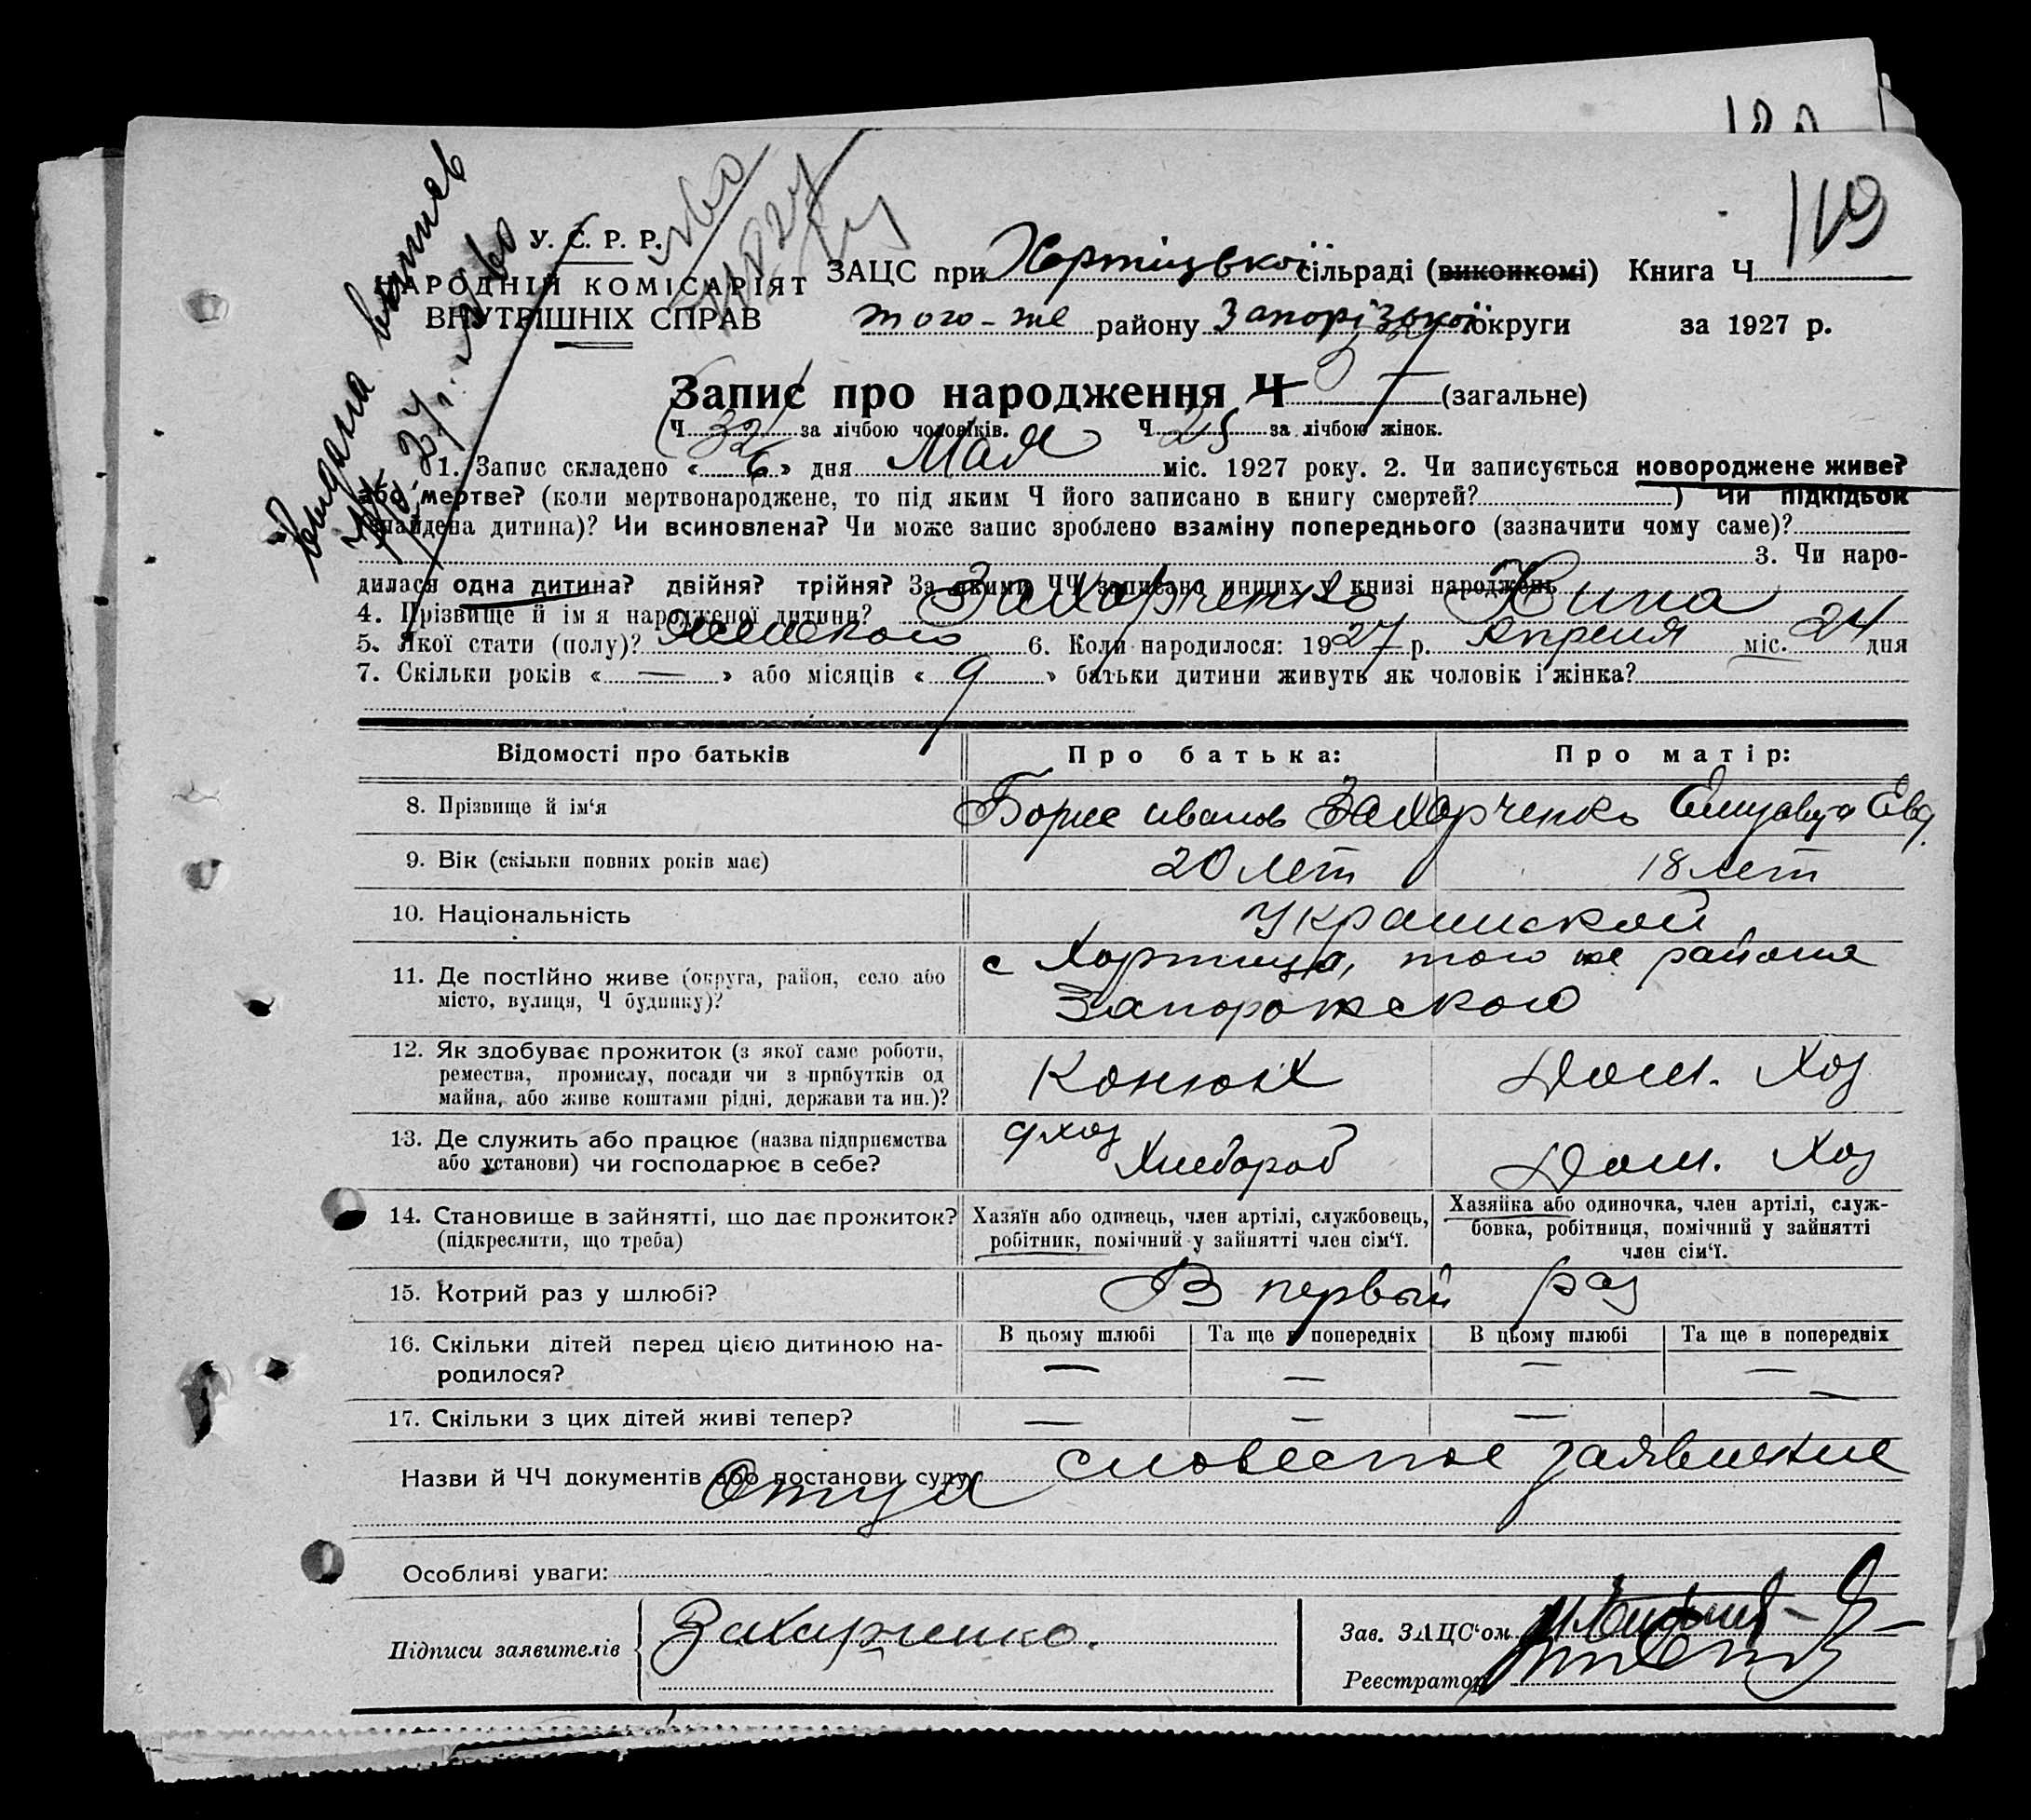 119
Видана выпись
У. С. Р. Р.
НАРОДНІЙ КОМІСАРІЯТ
ВНУТРІШНІХ СПРАВ
ЗАЦС при Хортицькой сільраді (виконкомі) Книга Ч
того-же району Запорізької округи за 1927 р.
Запис про народження Ч 57 (загальне)
(Ч 32 за лічбою чоловіків. Ч 25 за лічбою жінок.
1. Запис складено « 6 » дня Мая міс. 1927 року. 2. Чи записується новороджене живе?
або мертве? (коли мертвонароджене, то під яким Ч його записано в книгу смертей? ) Чи підкідьок
(знайдена дитина)? Чи всиновлена? Чи може запис зроблено взаміну попереднього (зазначити чому саме)?
3. Чи наро-
дилася одна дитина? двійня? трійня? За якими ЧЧ записано инших у книзі народжень
4. Прізвище й ім я народженої дитини? Захарченко Нина
5. Якої стати (полу)? Женского 6. Коли народилося: 1927 р. Апреля міс. 24 дня
7. Скільки років « — » або місяців « 9 » батьки дитини живуть як чоловік і жінка?
Відомості про батьків Про батька: Про матір:
8. Прізвище й ім‘я Борис Иванов Захарченко Елизавета Евд.
9. Вік (скільки повних років має) 20 лет 18 лет
10. Національність Украинской
11. Де постійно живе (округа, район, село або
місто, вулиця, Ч будинку)?
с Хортица, того же района
Запорожского
12. Як здобуває прожиток (з якої саме роботи,
ремества, промислу, посади чи з прибутків од
майна, або живе коштами рідні, держави та ин.)?
Конюх Дом. Хоз
13. Де служить або працює (назва підприємства
або установи) чи господарює в себе?
Хлебороб Дом. Хоз
14. Становище в зайнятті, що дає прожиток?
(підкреслити, що треба)
Хазяїн або одинець, член артілі, службовець,
робітник, помічний у зайнятті член сім‘ї.
Хазяйка або одиночка, член артілі, служ-
бовка, робітниця, помічний у зайнятті
член сім‘ї.
15. Котрий раз у шлюбі? В первый раз
16. Скільки дітей перед цією дитиною на-
родилося?
В цьому шлюбі Та ще в попередніх В цьому шлюбі Та ще в попередніх
— — — —
17. Скільки з цих дітей живі тепер? — — — —
Назви й ЧЧ документів або постанови суду словесное заявление
Отца
Особливі уваги:
Підписи заявителів Захарченко.
Зав. ЗАЦС‘ом
Реєстратор